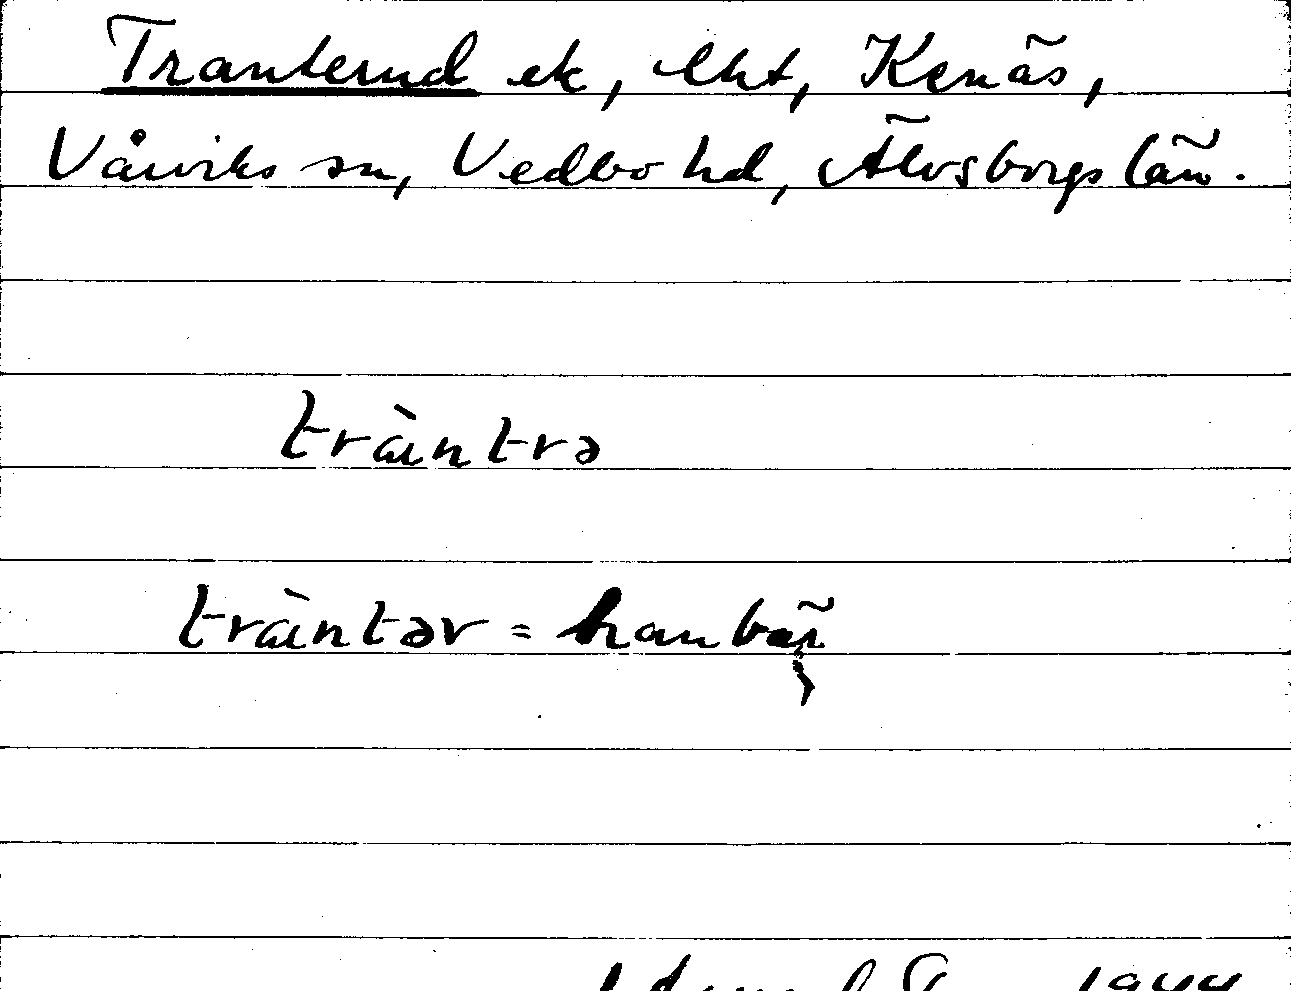 Tranterud ek, lht, Kenäs,
Vårviks sn, Vedbo hd, Älvsborgs län.
tràntrə
tràntər = hanbär
1944